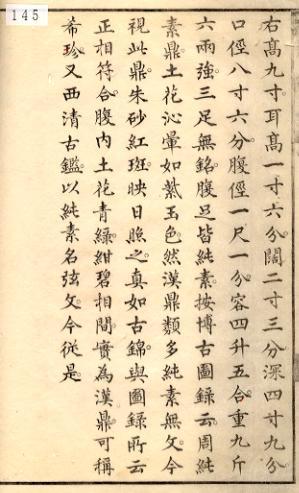 145
右高九寸耳高一寸六分闊二寸三分深四寸九分
口徑八寸六分腹徑一尺一分容四升五合重九斤
六兩強三足無銘腹足皆純素按博古圖錄云周純
素鼎土花沁暈如紫玉色然漢鼎類多純素無文今
視此鼎朱砂紅斑映日照之真如古錦與圖錄所云
正相符合腹内土花青綠紺碧相間實為漢鼎可稱
希珍又西清古鑑以純素名弦文今從是